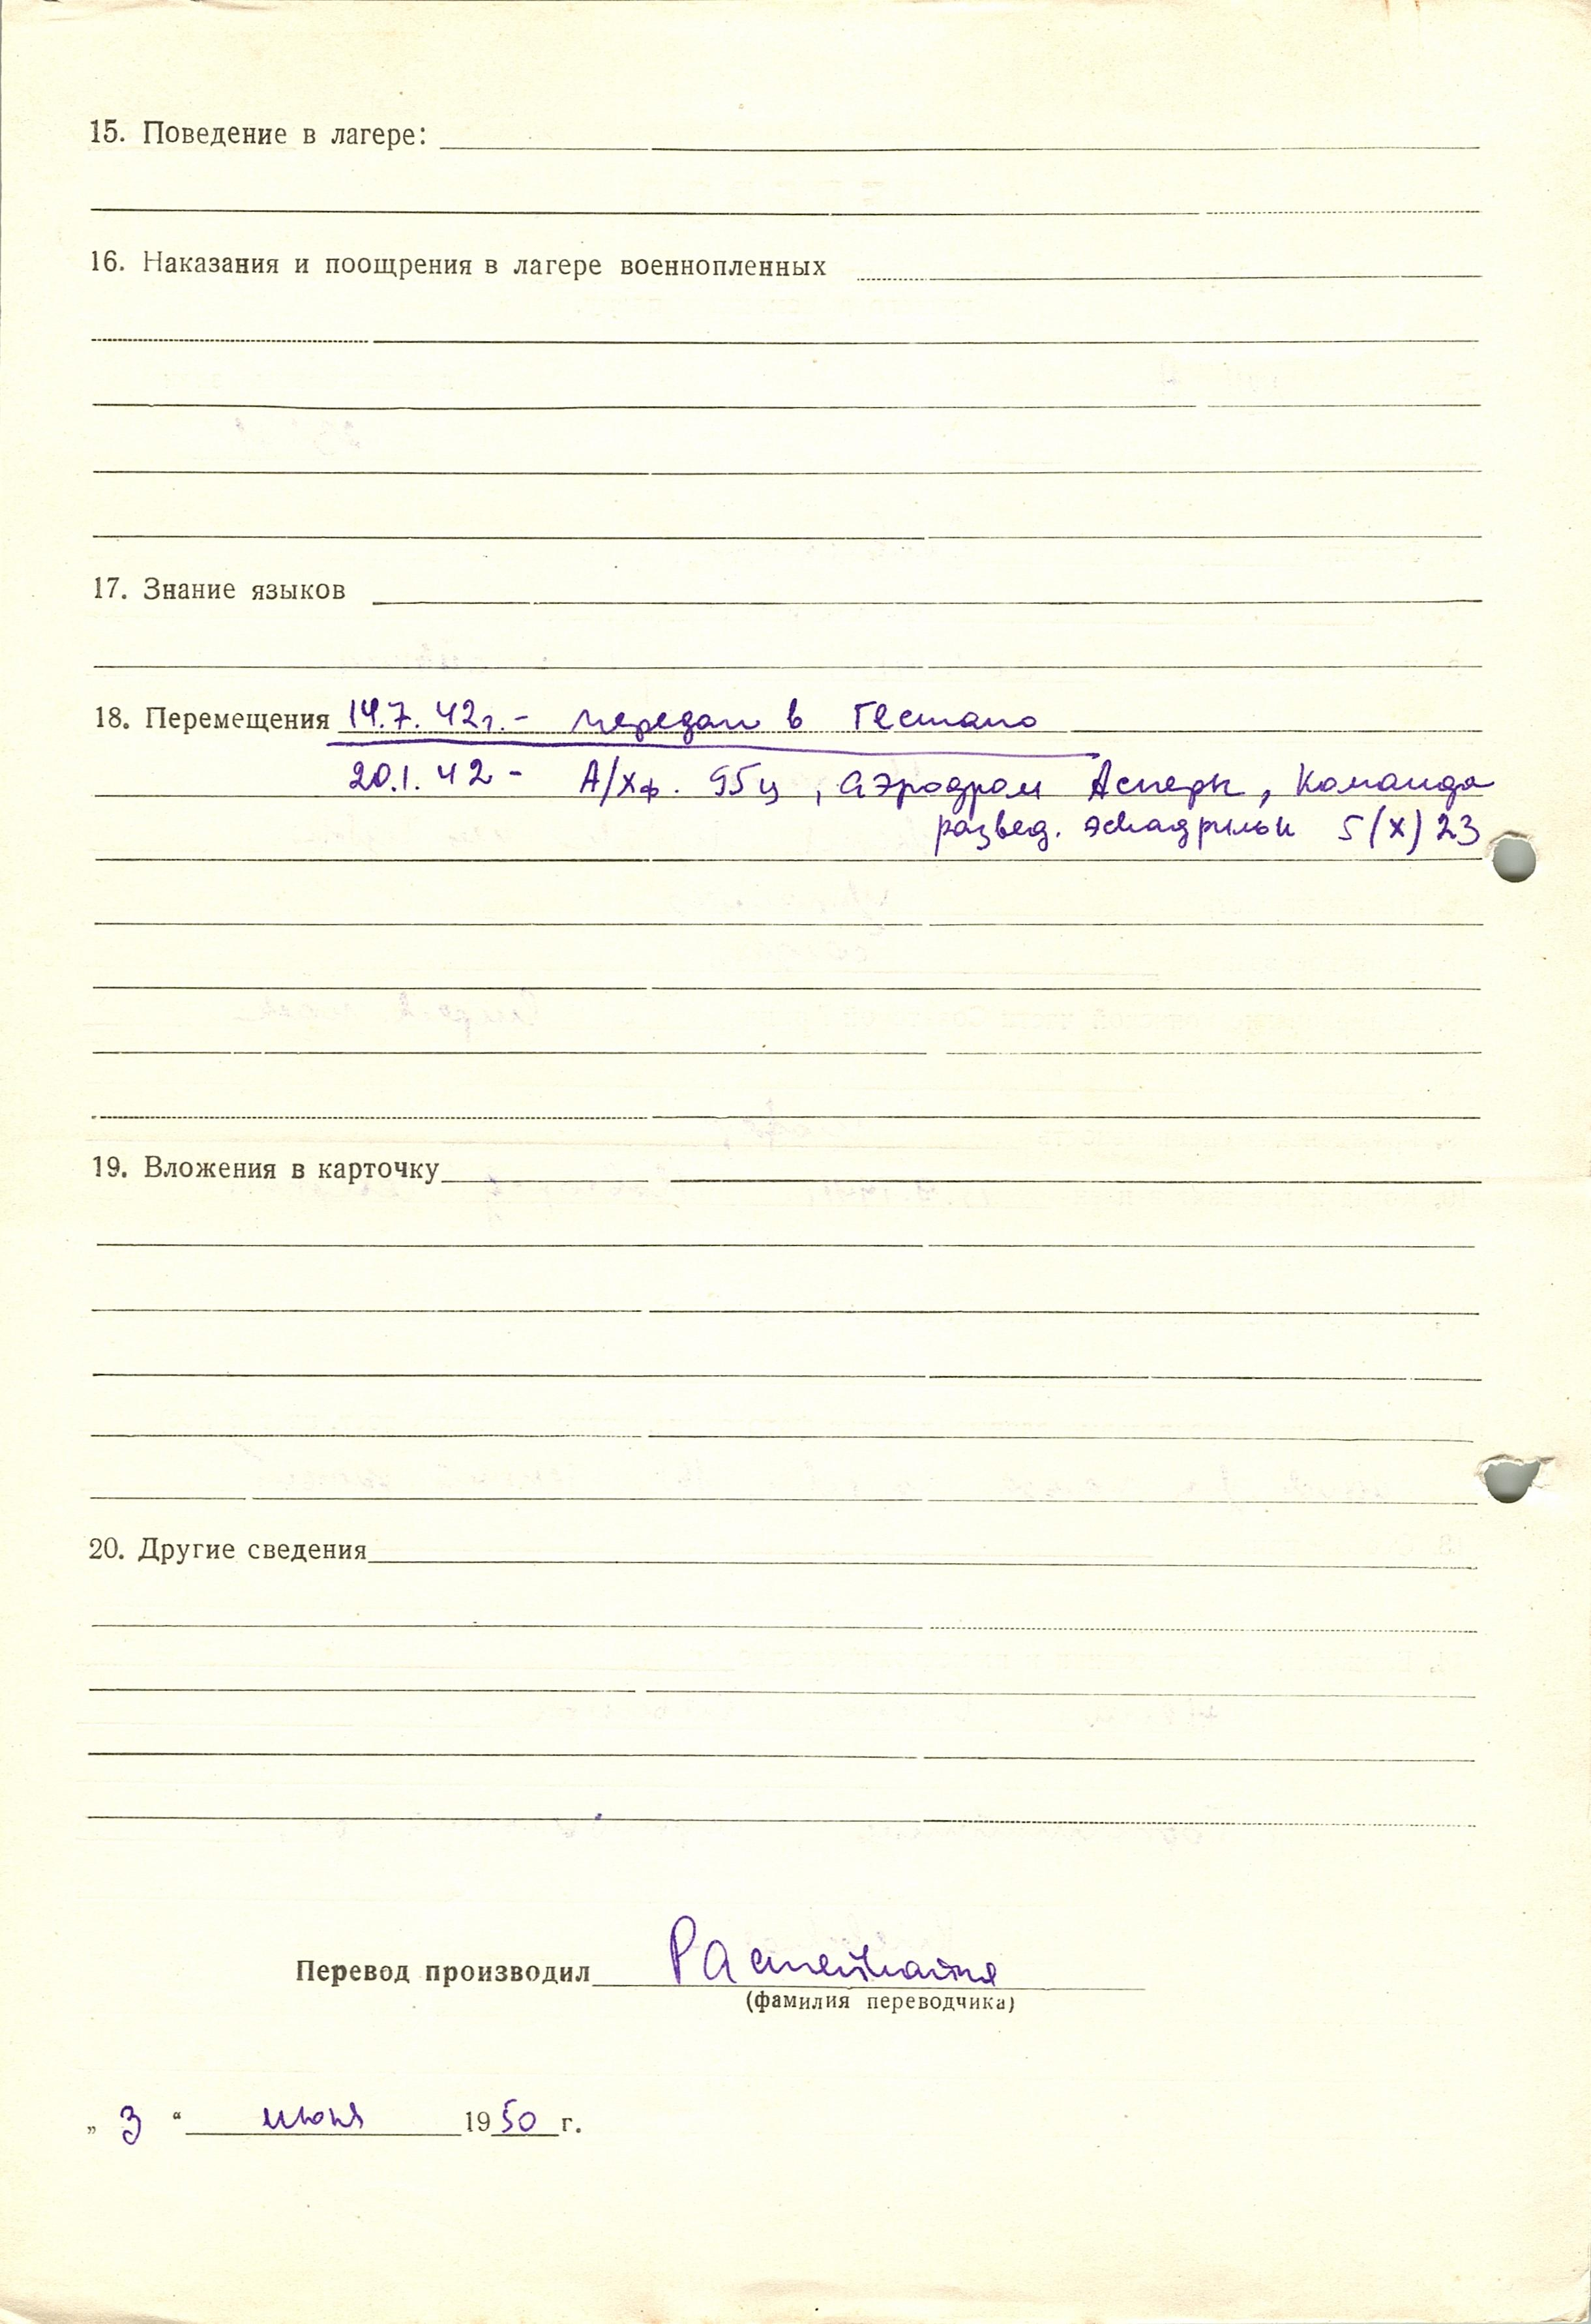 15. Поведение в лагере:
16. Наказания и поощрения в лагере военнопленных
17. Знание языков
18. Перемещения 14.7.42г. - передан в Гестапо
20.1.42 - А/Хф. 95ц, аэродром Асперн, Команда
развед. эскадрильи 5(х)23
19. Вложения в карточку
20. Другие сведения
Перевод производил
(фамилия переводчика)
„ 3 “ июня 1950 г.